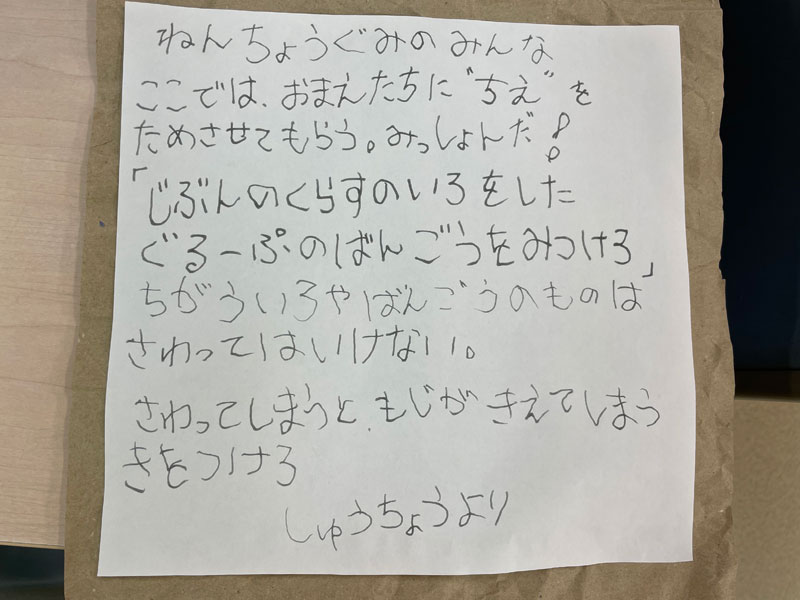 ねんちょうぐみのみんな
ここでは、おまえたちに"ちえ"を
ためさせてもらう。みっしょんだ!
「じぶんのくらすのいろをした
ぐるーぷのばんごうをみつけろ」
ちがういろやばんごうのものは
さわってはいけない。
さわってしまうと、もじがきえてしまう
きをつけろ
しゅうちょうより